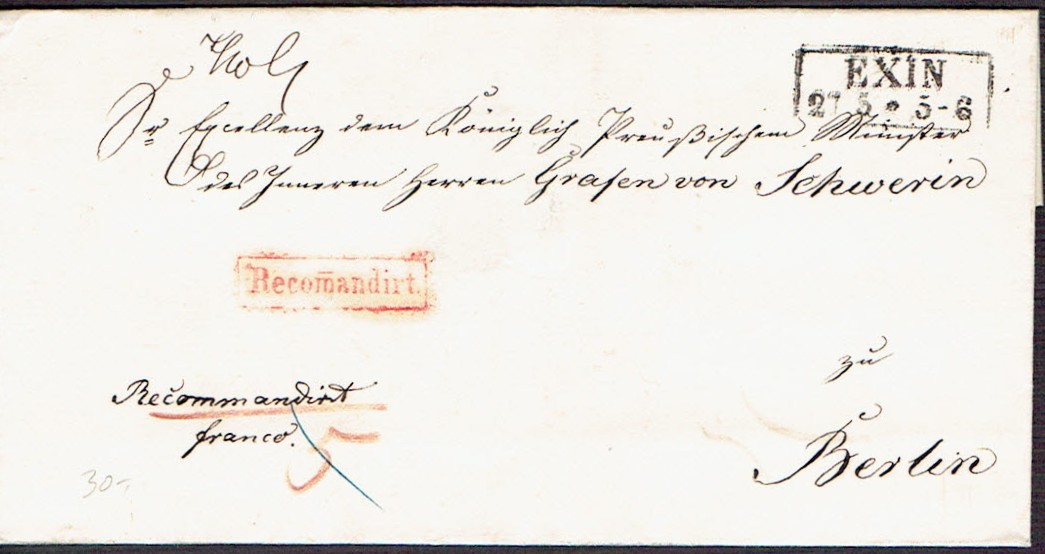 EXIN
27 5 * 5-6
Sr Excellenz dem Königlich Preußischem Minister
des Inneren Herren Grafen von Schwerin
Recom̅andirt.
zu
Recommandirt
franco.
5
Berlin
30-,